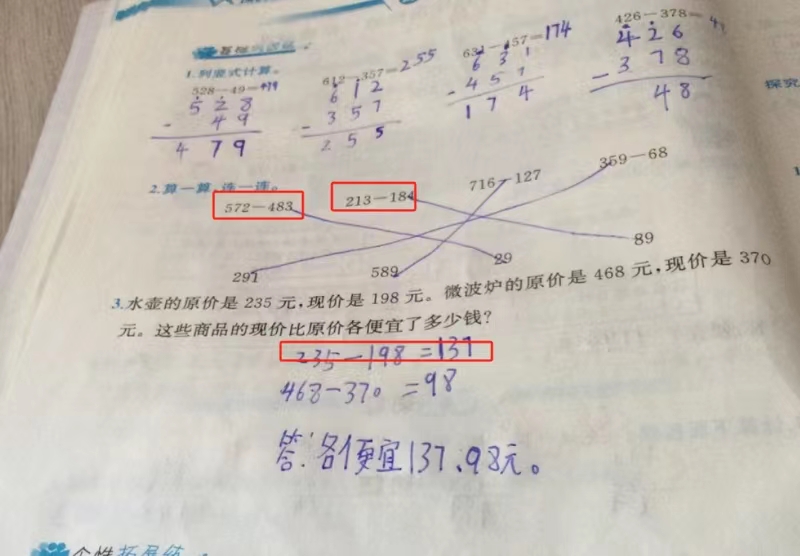 1.列竖式计算。
528－49=479
5 2 8
- 4 9
4 7 9
612－357=255
6 1 2
- 3 5 7
2 5 5
631－457=174
6 3 1
- 4 5 7
1 7 4
426－378=
4 2 6
- 3 7 8
4 8
2.算一算，连一连。
572－483 213－184 716－127 359－68
291 589 29 89
3.水壶的原价是 235 元，现价是 198 元。微波炉的原价是 468 元，现价是 370
元。这些商品的现价比原价各便宜了多少钱？
235－198=137
468－370=98
答：各便宜137、98元。
探究